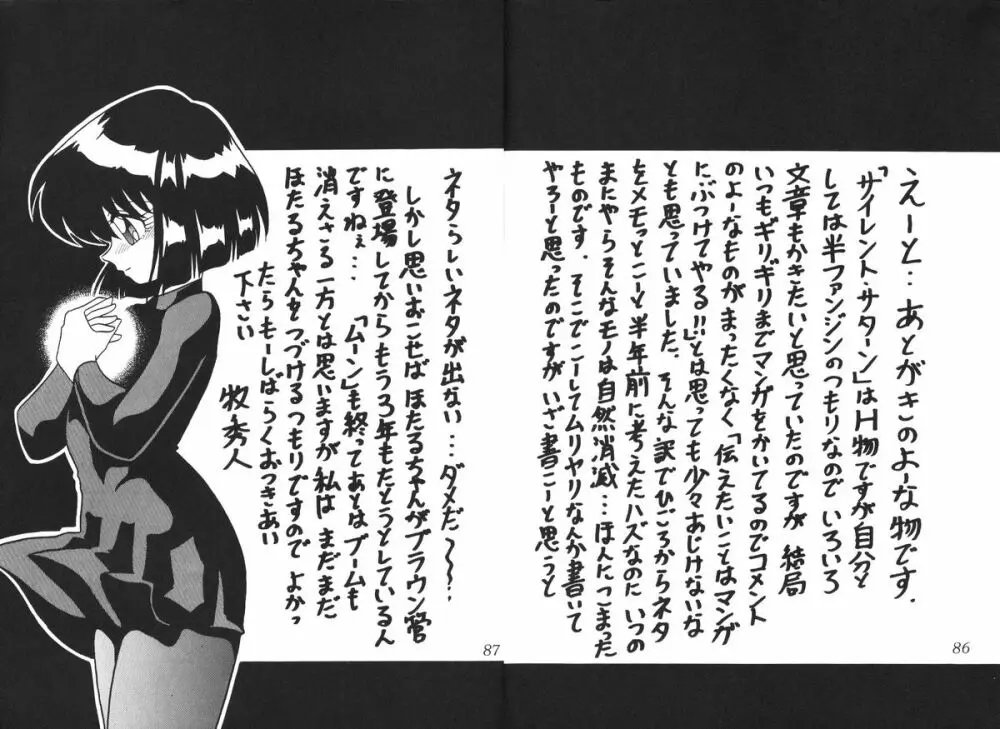 えーと…あとがきのよーな物です.
「サイレント・サターン」はH物ですが自分と
しては半ファンジンのつもりなので いろいろ
文章もかきたいと思っていたのですが 結局
いつもギリギリまでマンガをかいてるのでコメント
のよーなものがまったくなく「伝えたいことはマンガ
にぶつけてやる!!」とは思っても少々あじけないな
とも思っていました. そんな訳でひごろからネタ
をメモっとこーと半年前に考えたハズなのに いつの
まにやらそんなモノは自然消滅…ほんにこまった
ものです. そこでこーしてムリヤリなんか書いて
やろーと思ったのですが いざ書こーと思うと
86
ネタらしいネタが出ない…ダメだ〜〜…
しかし思いおこせば ほたるちゃんがブラウン管
に登場してからもう3年もたとうとしているん
ですねぇ… 「ムーン」も終ってあとはブームも
消えさる一方とは思いますが 私は まだまだ
ほたるちゃんをつづけるつもりですので よかっ
たらもーしばらくおつきあい
下さい
牧秀人
87